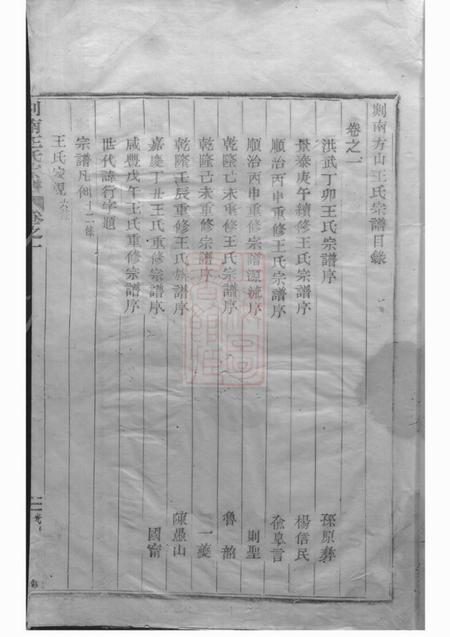 剡南方山王氏宗譜目錄
卷之一
洪武丁卯王氏宗譜序 孫原彝
景泰庚午續修王氏宗譜序 楊信民
順治丙申重修王氏宗譜序 俞言
順治丙申重修宗譜源流序 則聖
乾隆己未重修王氏宗譜序 魯韶
乾隆己未重修宗譜序 一夔
乾隆壬辰重修王氏族譜序 陳愚山
嘉慶丁丑王氏重修宗譜序 國甯
咸豐戊午王氏重修宗譜序
世代諱行字題
宗譜凡例十二條
王氏家規六條
剡南王氏宗譜 卷之一